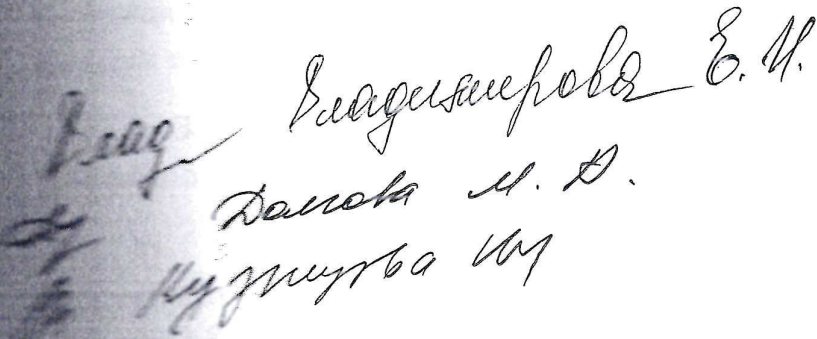 Влад Владимирова Е. И.
Долгова М. Д.
Кузнецова